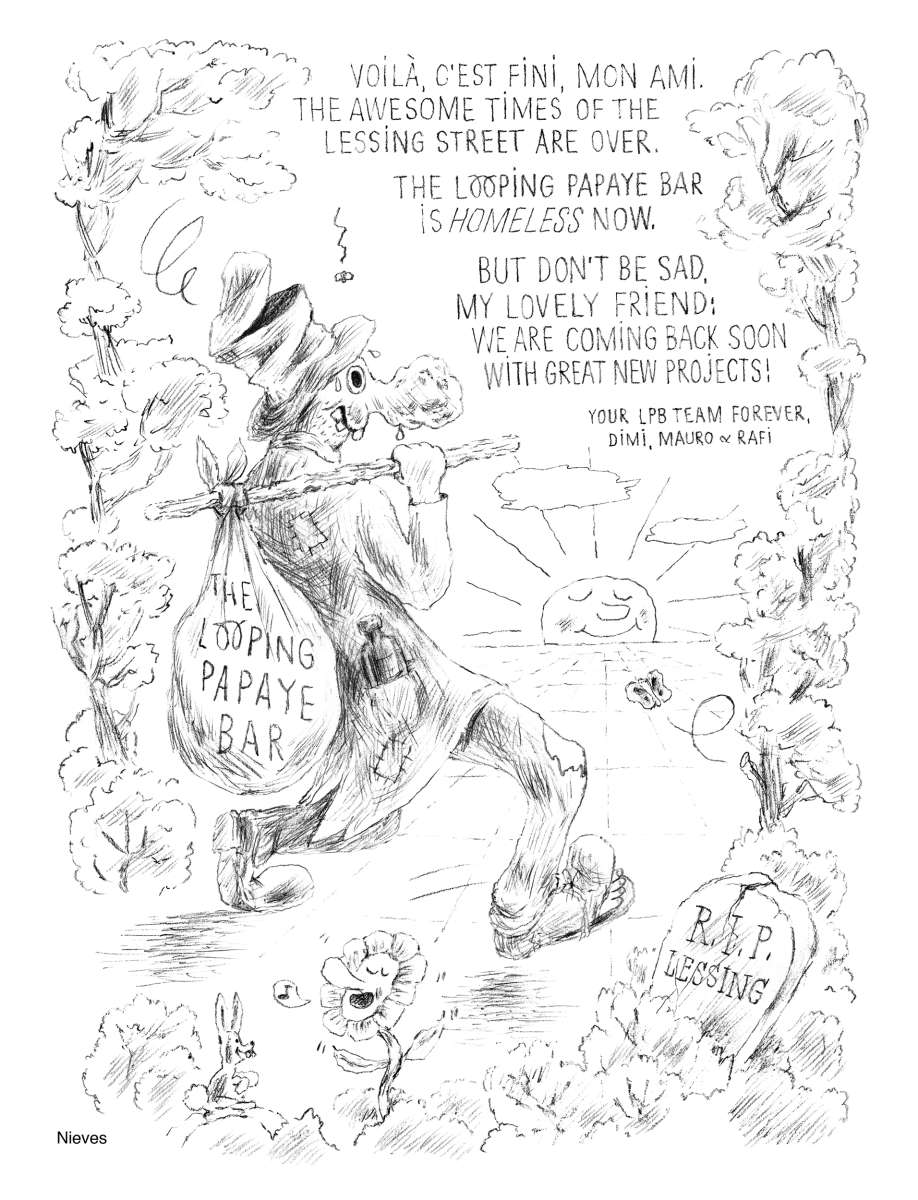 VOILÀ, C'EST FINI, MON AMI.
THE AWESOME TIMES OF THE
LESSING STREET ARE OVER.
THE LOOPING PAPAYE BAR
IS HOMELESS NOW.
BUT DON'T BE SAD,
MY LOVELY FRIEND:
WE ARE COMING BACK SOON
WITH GREAT NEW PROJECTS!
YOUR LPB TEAM FOREVER,
DIMI, MAURO & RAFI
THE
LOOPING
PAPAYE
BAR
R.I.P.
LESSING
Nieves